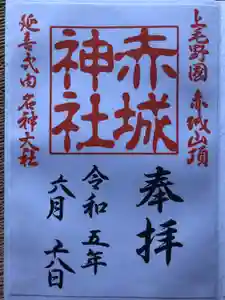 上毛野國 赤城山頂
赤城
神社
延喜式内名神大社
奉拝
令和五年
六月 十八日